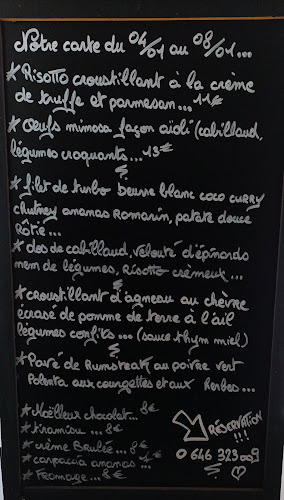 Notre carte du 04/01 au 08/01...
* Risotto croustillant à la crème
de truffe et parmesan... 11€
* Oeufs mimosa façon aïoli (cabillaud,
légumes croquants... 13€
* filet de turbo beurre blanc coco curry
chutney ananas Romarin, patate douce
Rôtie...
* dos de cabillaud, velouté d'épinards
nem de légumes, Risotto crémeux...
* croustillant d'agneau au chèvre
écrasé de pomme de terre à l'ail
légumes confits... (sauce thym miel)
* Pavé de Rumsteak au poivre vert
Polenta aux courgettes et aux Herbes...
* Moëlleux chocolat... 8€
* tiramisu ... 8€
* crème Brulée... 8€
* carpaccio ananas
* Fromage... 8€
RÉSERVATION
!!!
0 646 323 009